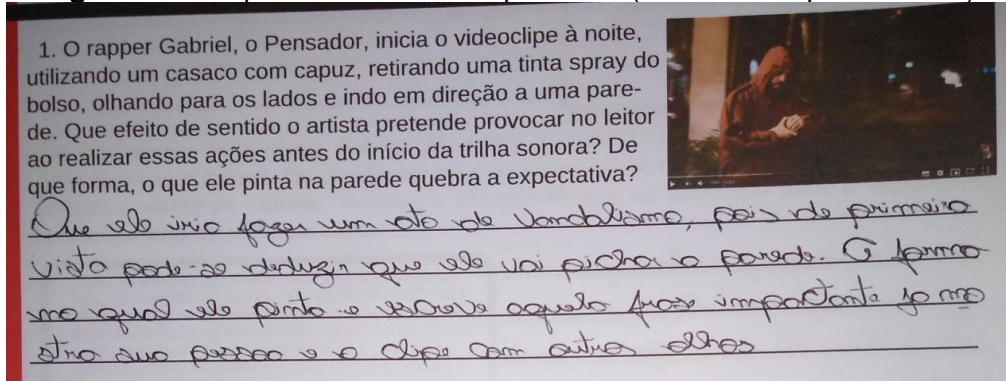 1. O rapper Gabriel, o Pensador, inicia o videoclipe à noite,
utilizando um casaco com capuz, retirando uma tinta spray do
bolso, olhando para os lados e indo em direção a uma pare-
de. Que efeito de sentido o artista pretende provocar no leitor
ao realizar essas ações antes do início da trilha sonora? De
que forma, o que ele pinta na parede quebra a expectativa?
Que ele iria fazer um ato de vandalismo, pois de primeira
vista pode-se deduzir que ele vai pichar a parede. A forma
na qual ele pinta e escreve aquela frase impactante ja mo
stra sua pessoa e o clipe com outros olhos